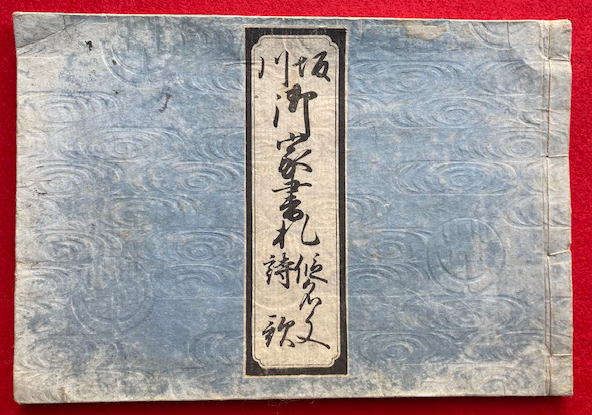 坂川
御家書札
仮名文
詩歌